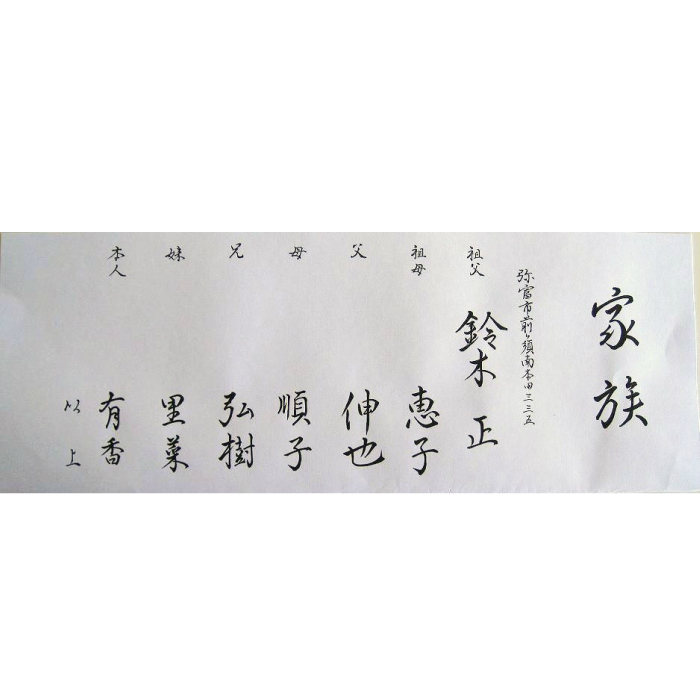 家族
弥富市前ヶ須南本田三三五
祖父 鈴木 正
祖母 恵子
父 伸也
母 順子
兄 弘樹
妹 里菜
本人 有香
以上